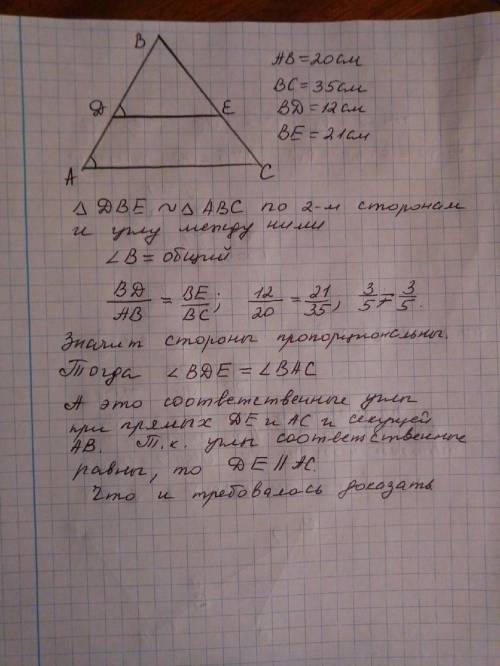 B
AB=20см
BC=35см
BD=12см
BE=21см
D
E
A
C
Δ DBE ~ Δ ABC по 2-м сторонам
и углу между ними
∠B = общий
BD/AB = BE/BC; 12/20 = 21/35, 3/5 = 3/5.
Значит стороны пропорциональны.
Тогда ∠BDE = ∠BAC
А это соответственные углы
при прямых DE и AC и секущей
AB. Т.к. углы соответственные
равны, то DE || AC.
Что и требовалось доказать